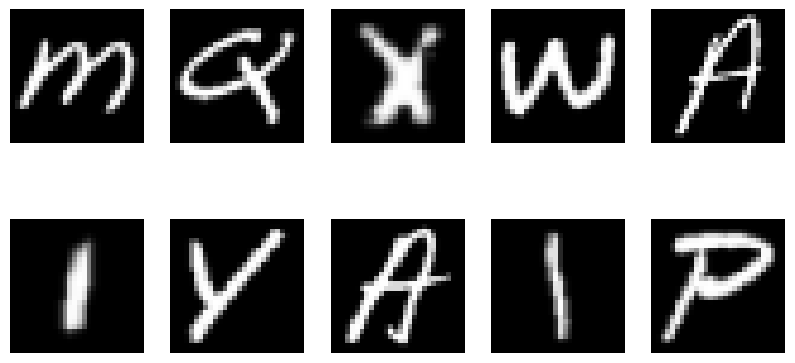 M Q X W A
I Y A I P